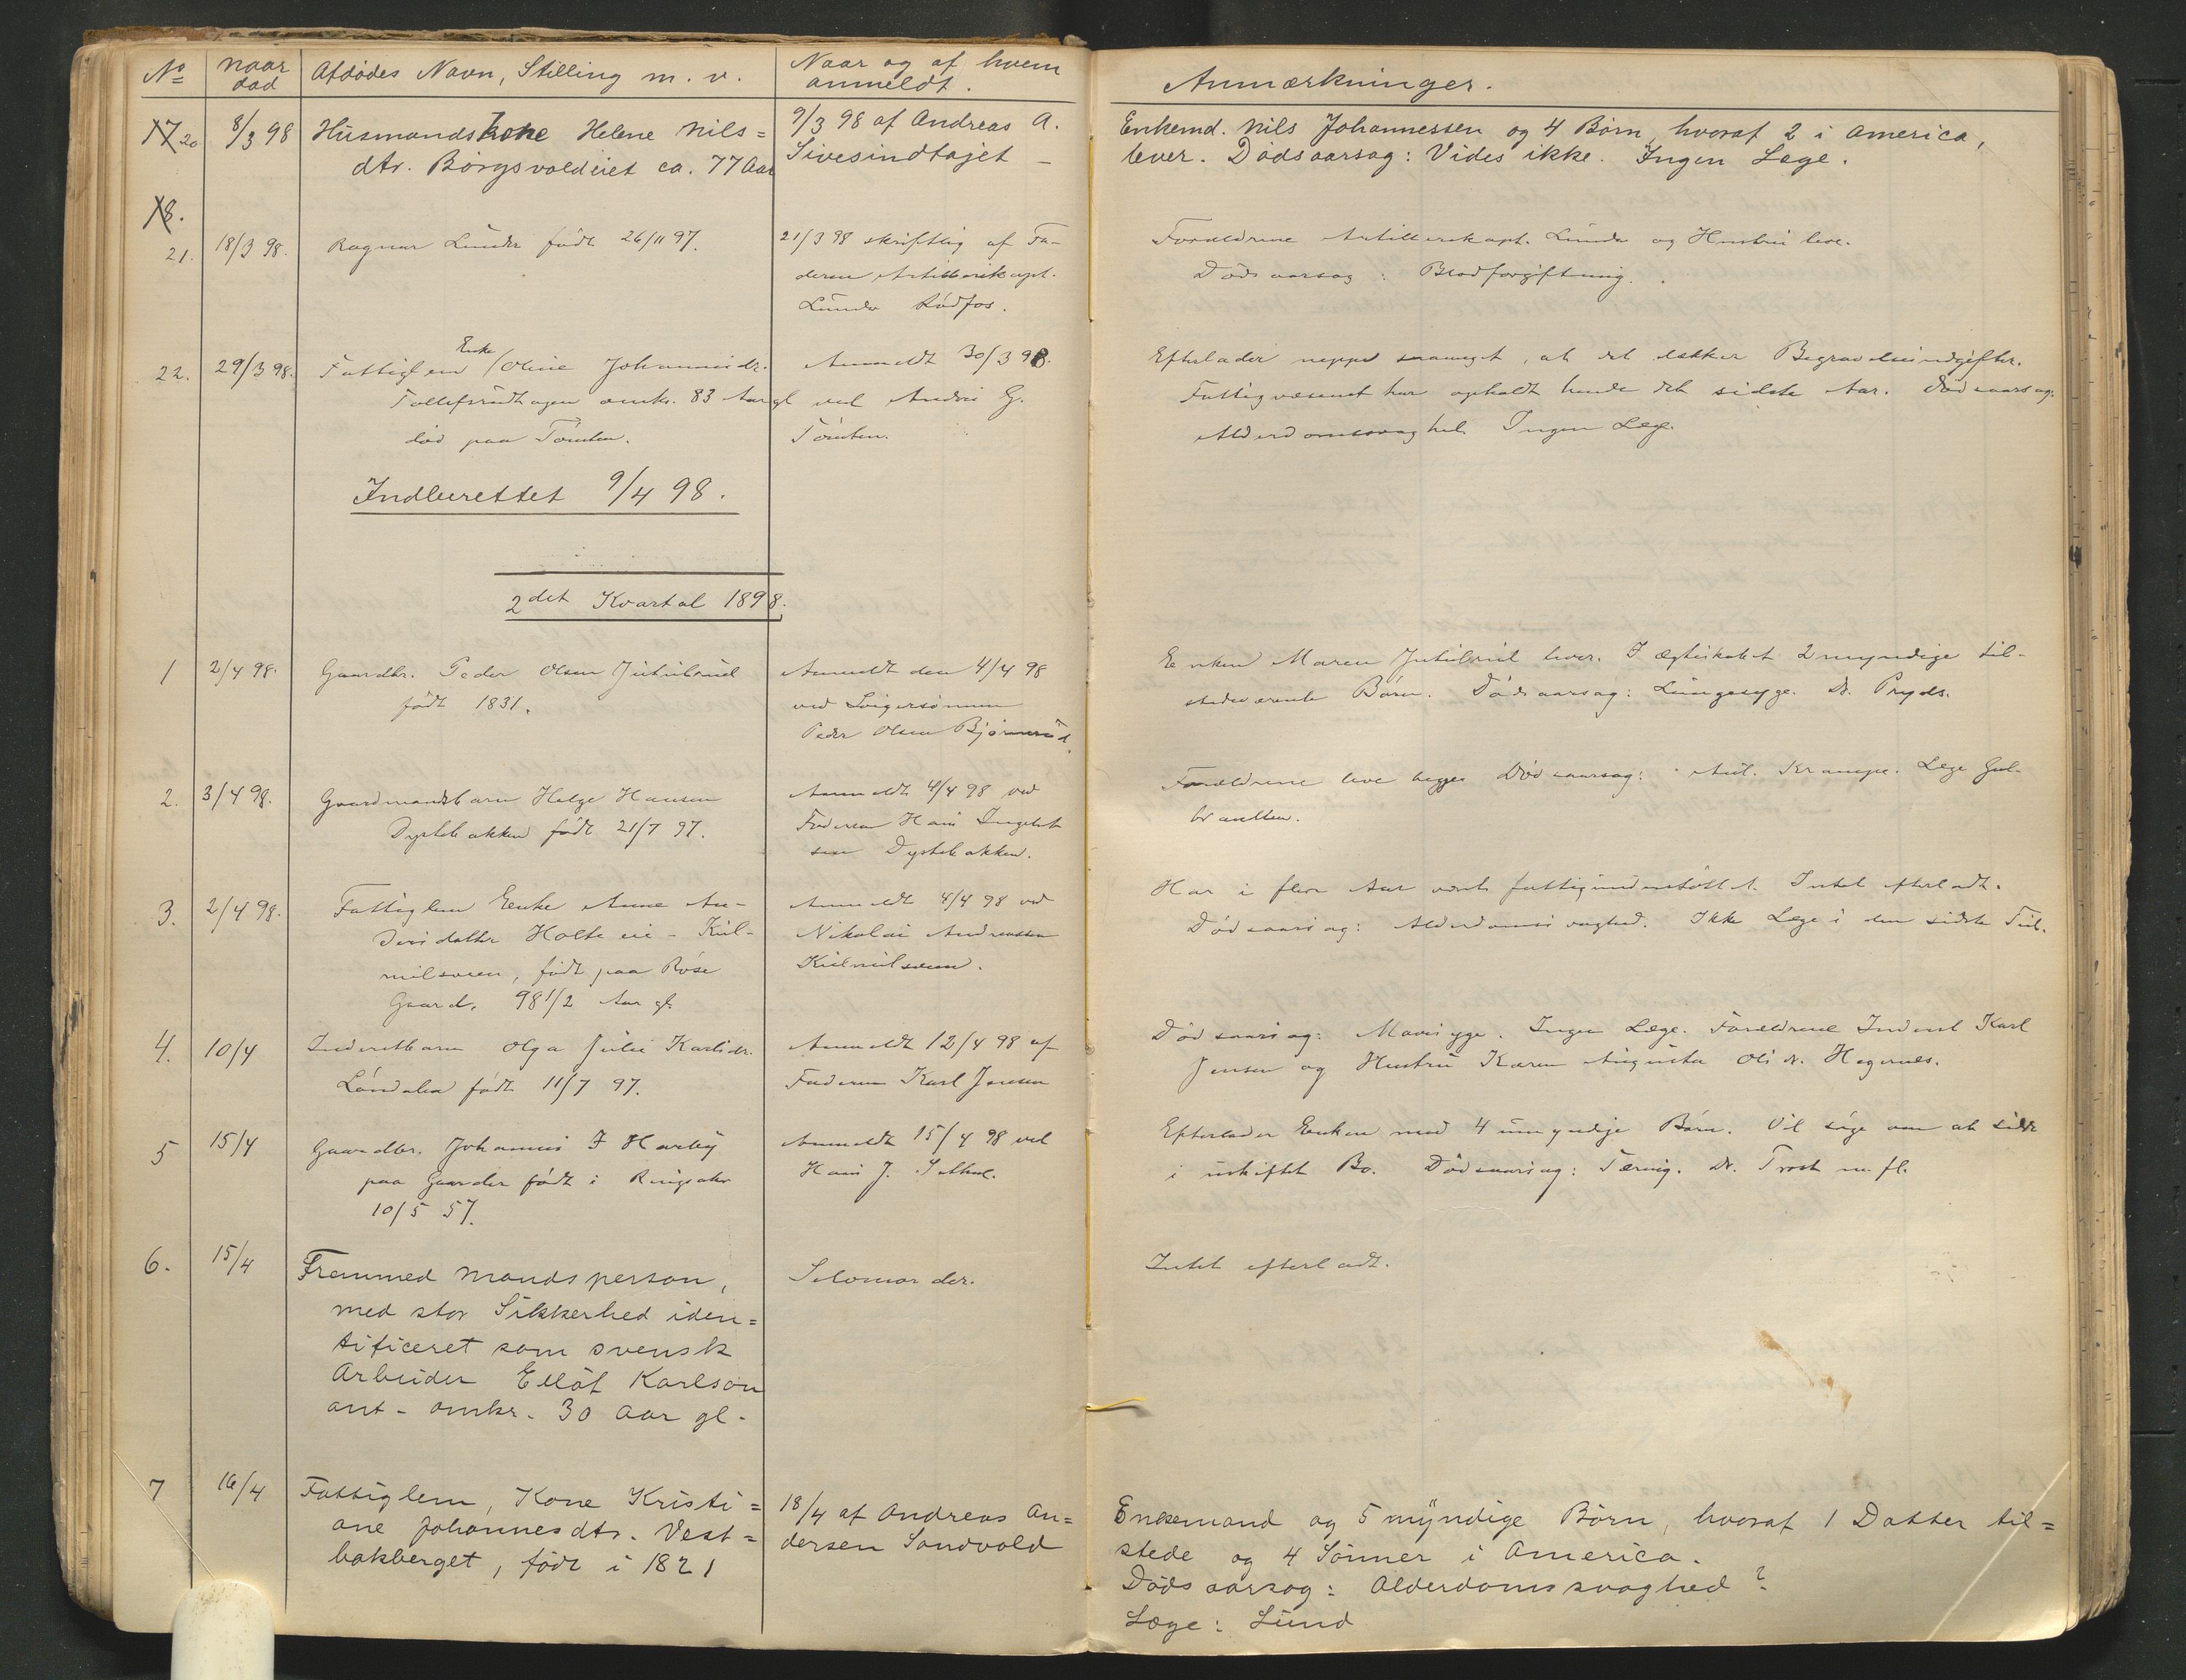 No naar Afdødes Navn, Stilling m. v. Naar og af hvem Anmærkninger.
død anmeldt.
17 20 8/3 98 Husmandskone Helene Nils= 9/3 98 af Andreas A. Enkemd. Nils Johannessen og 4 Børn, hvoraf 2 i America,
dtr. Børgsvoldeiet ca. 77 Aar Sivesindtajet – lever. Dødsaarsag: Vides ikke. Ingen Læge.
18.
21. 18/3 98. Ragnar Lunde født 26/11 97. 21/3 98 skriftlig af Fa- Forældrene Artillerikapt. Lunde og Hustru leve.
deren Artillerikapt. Dødsaarsag: Blodforgiftning.
Lunde Rødfos.
Enke
22. 29/3 98. Fattiglem Oline Johannisdr. Anmeldt 30/3 98. Efterlader neppe saameget, at det dækker Begravelsesudgifter.
Tollefsrudhagen omkr. 83 Aar gl ved Andrs G. Fattigvæsenet har opholdt hende det sidste Aar. Dødsaarsag:
død paa Tomten. Tomten. Alderdomssvaghed. Ingen Læge.
Indberettet 9/4 98.
2det Kvartal 1898.
1 2/4 98. Gaardbr. Peder Olsen Jutulrud Anmeldt den 4/4 98 Enken Maren Jutulrud lever. I ægteskabet 2 myndige til-
født 1831. ved Svigersønnen stedeværende Børn. Dødsaarsag: Lungesyge. Dr. Pryds.
Peder Olsen Bjørnerud.
2. 3/4 98. Gaardmandsbarn Helge Hansen Anmeldt 4/4 98 ved Forældrene leve begge Dødsaarsag: Krampe. Læge Gul-
Dystebakken født 21/7 97. Faderen Hans Ingebret brandsen.
sen Dystebakken.
3. 2/4 98. Fattiglem Enke Anne An- Anmeldt 4/4 98 ved Har i flere Aar været fattigunderstøttet. Intet efterladt.
dersdatter Holte eie - Kul- Nikolai Andreassen Dødsaarsag: Alderdomssvaghed. Ikke Læge i den sidste Tid.
milsveen, født paa Røse Kulmilsveen.
Gaard. 98 1/2 Aar gl.
4. 10/4 Inderstbarn Olga Julie Karlsdr. Anmeldt 12/4 98 af Dødsaarsag: Mavesyge. Ingen Læge. Forældrene Inderst Karl
Løndalen født 11/7 97. Faderen Karl Jensen Jensen og Hustru Karen Augusta Olsdr. Hagernes.
5 15/4 Gaardbr. Johannes J Harby Anmeldt 15/4 98 ved Efterlader Enken med 4 umyndige Børn. Vil søge om at sidde
paa Gaarder født i Ringsaker Hans J. i uskiftet Bo. Dødsaarsag: Tæring. Dr. Trost m. fl.
10/5 57.
6. 15/4 Fremmed Mandsperson, Intet efterladt.
med stor Sikkerhed iden=
tificeret som svensk
Arbeider Ellof Karlson
ant. omkr. 30 Aar gl.
7 16/4 Fattiglem, Kone Kristi= 18/4 af Andreas An= Enkemand og 5 myndige Børn, hvoraf 1 Datter til=
ane Johannesdtr. Vest= dersen Sandvold stede og 4 Sønner i America.
bakberget, født i 1821 Dødsaarsag: Alderdomssvaghed?
Læge: Lund